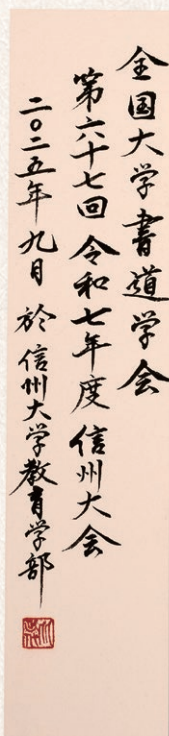 全国大学書道学会
第六十七回 令和七年度 信州大会
二〇二五年 九月 於 信州大学教育学部